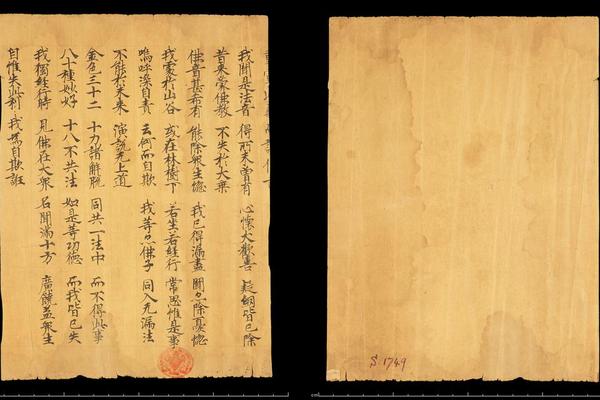 我聞是法音 得所未曾有 心懷大歡喜 疑網皆已除
昔來蒙佛教 不失於大乘
佛音甚希有 能除衆生惱 我已得漏盡 聞亦除憂惱
我處於山谷 或在林樹下 若坐若經行 常思惟是事
嗚呼深自責 云何而自欺 我等亦佛子 同入无漏法
不能於未來 演說无上道
金色三十二 十力諸解脫 同共一法中 而不得此事
八十種妙好 十八不共法 如是等功德 而我皆已失
我獨經行時 見佛在大衆 名聞滿十方 廣饒益衆生
自惟失此利 我爲自欺誑
S. 1749